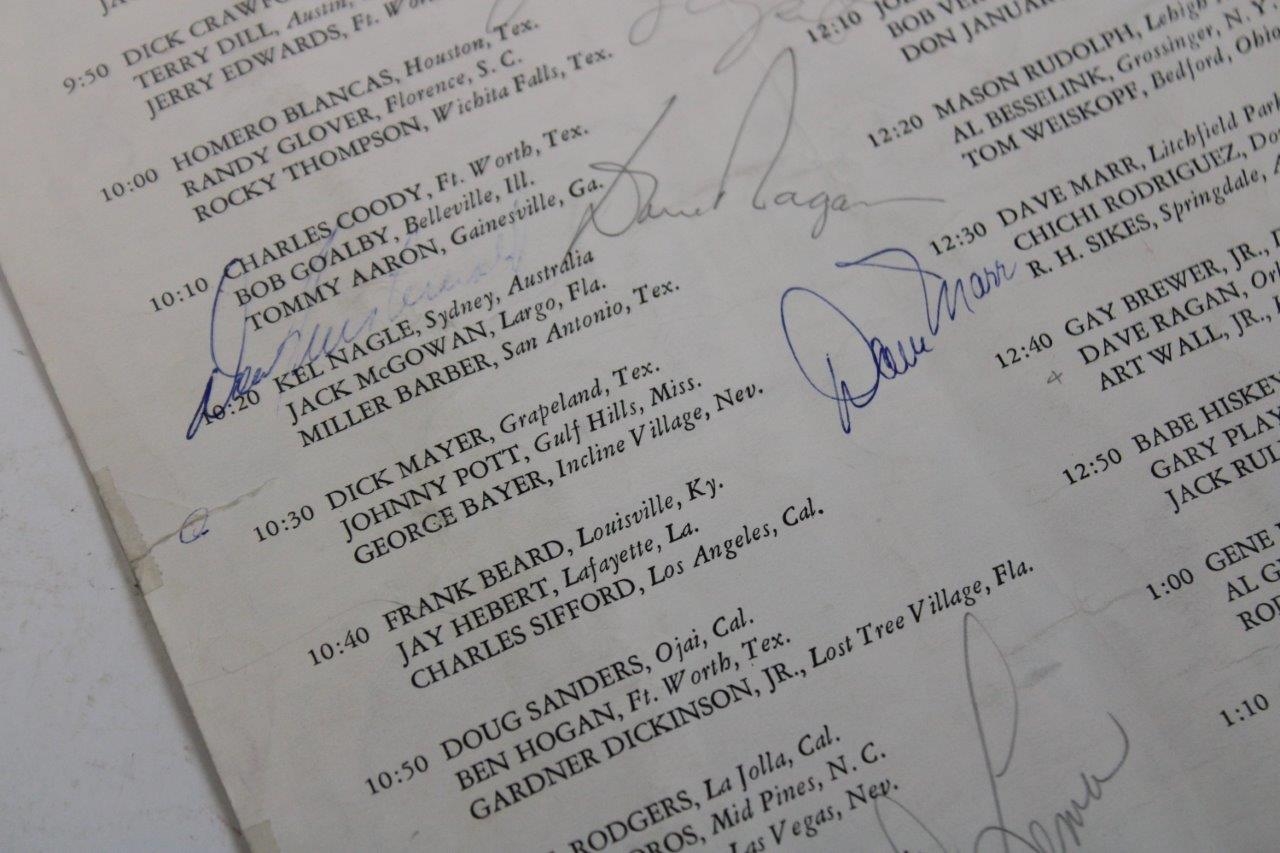 9:50 DICK
TERRY DILL, Austin,
JERRY EDWARDS, Ft.
10:00 HOMERO BLANCAS, Houston, Tex.
RANDY GLOVER, Florence, S. C.
ROCKY THOMPSON, Wichita Falls, Tex.
10:10 CHARLES COODY, Ft. Worth, Tex.
BOB GOALBY, Belleville, Ill.
TOMMY AARON, Gainesville, Ga.
10:20 KEL NAGLE, Sydney, Australia
JACK McGOWAN, Largo, Fla.
MILLER BARBER, San Antonio, Tex.
10:30 DICK MAYER, Grapeland, Tex.
JOHNNY POTT, Gulf Hills, Miss.
GEORGE BAYER, Incline Village, Nev.
10:40 FRANK BEARD, Louisville, Ky.
JAY HEBERT, Lafayette, La.
CHARLES SIFFORD, Los Angeles, Cal.
10:50 DOUG SANDERS, Ojai, Cal.
BEN HOGAN, Ft. Worth, Tex.
GARDNER DICKINSON, JR., Lost Tree Village, Fla.
RODGERS, La Jolla, Cal.
Mid Pines, N. C.
Las Vegas, Nev.
Dave Ragan
Dave Marr
Lema
12:10
BOB
DON
12:20 MASON RUDOLPH, Lehigh
AL BESSELINK, Grossinger, N. Y.
TOM WEISKOPF, Bedford, Ohio
12:30 DAVE MARR, Litchfield
CHICHI RODRIGUEZ,
R. H. SIKES, Springdale,
12:40 GAY BREWER, JR.,
DAVE RAGAN,
ART WALL, JR.,
12:50 BABE HISKEY
GARY
JACK
1:00 GENE
AL
1:10